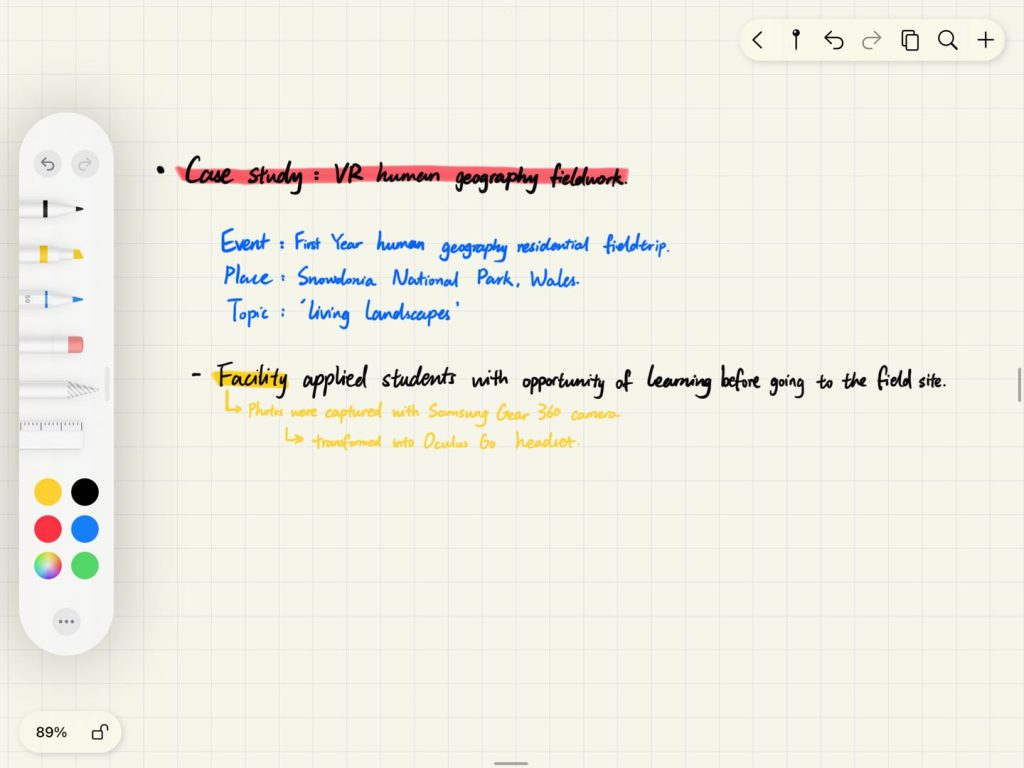 • Case study : VR human geography fieldwork.
Event : First Year human geography residential fieldtrip.
Place : Snowdonia National Park, Wales.
Topic : 'Living Landscapes'
- Facility applied students with opportunity of learning before going to the field site.
↳ Photos were captured with Samsung Gear 360 camera
↳ transformed into Oculus Go headset.
89%